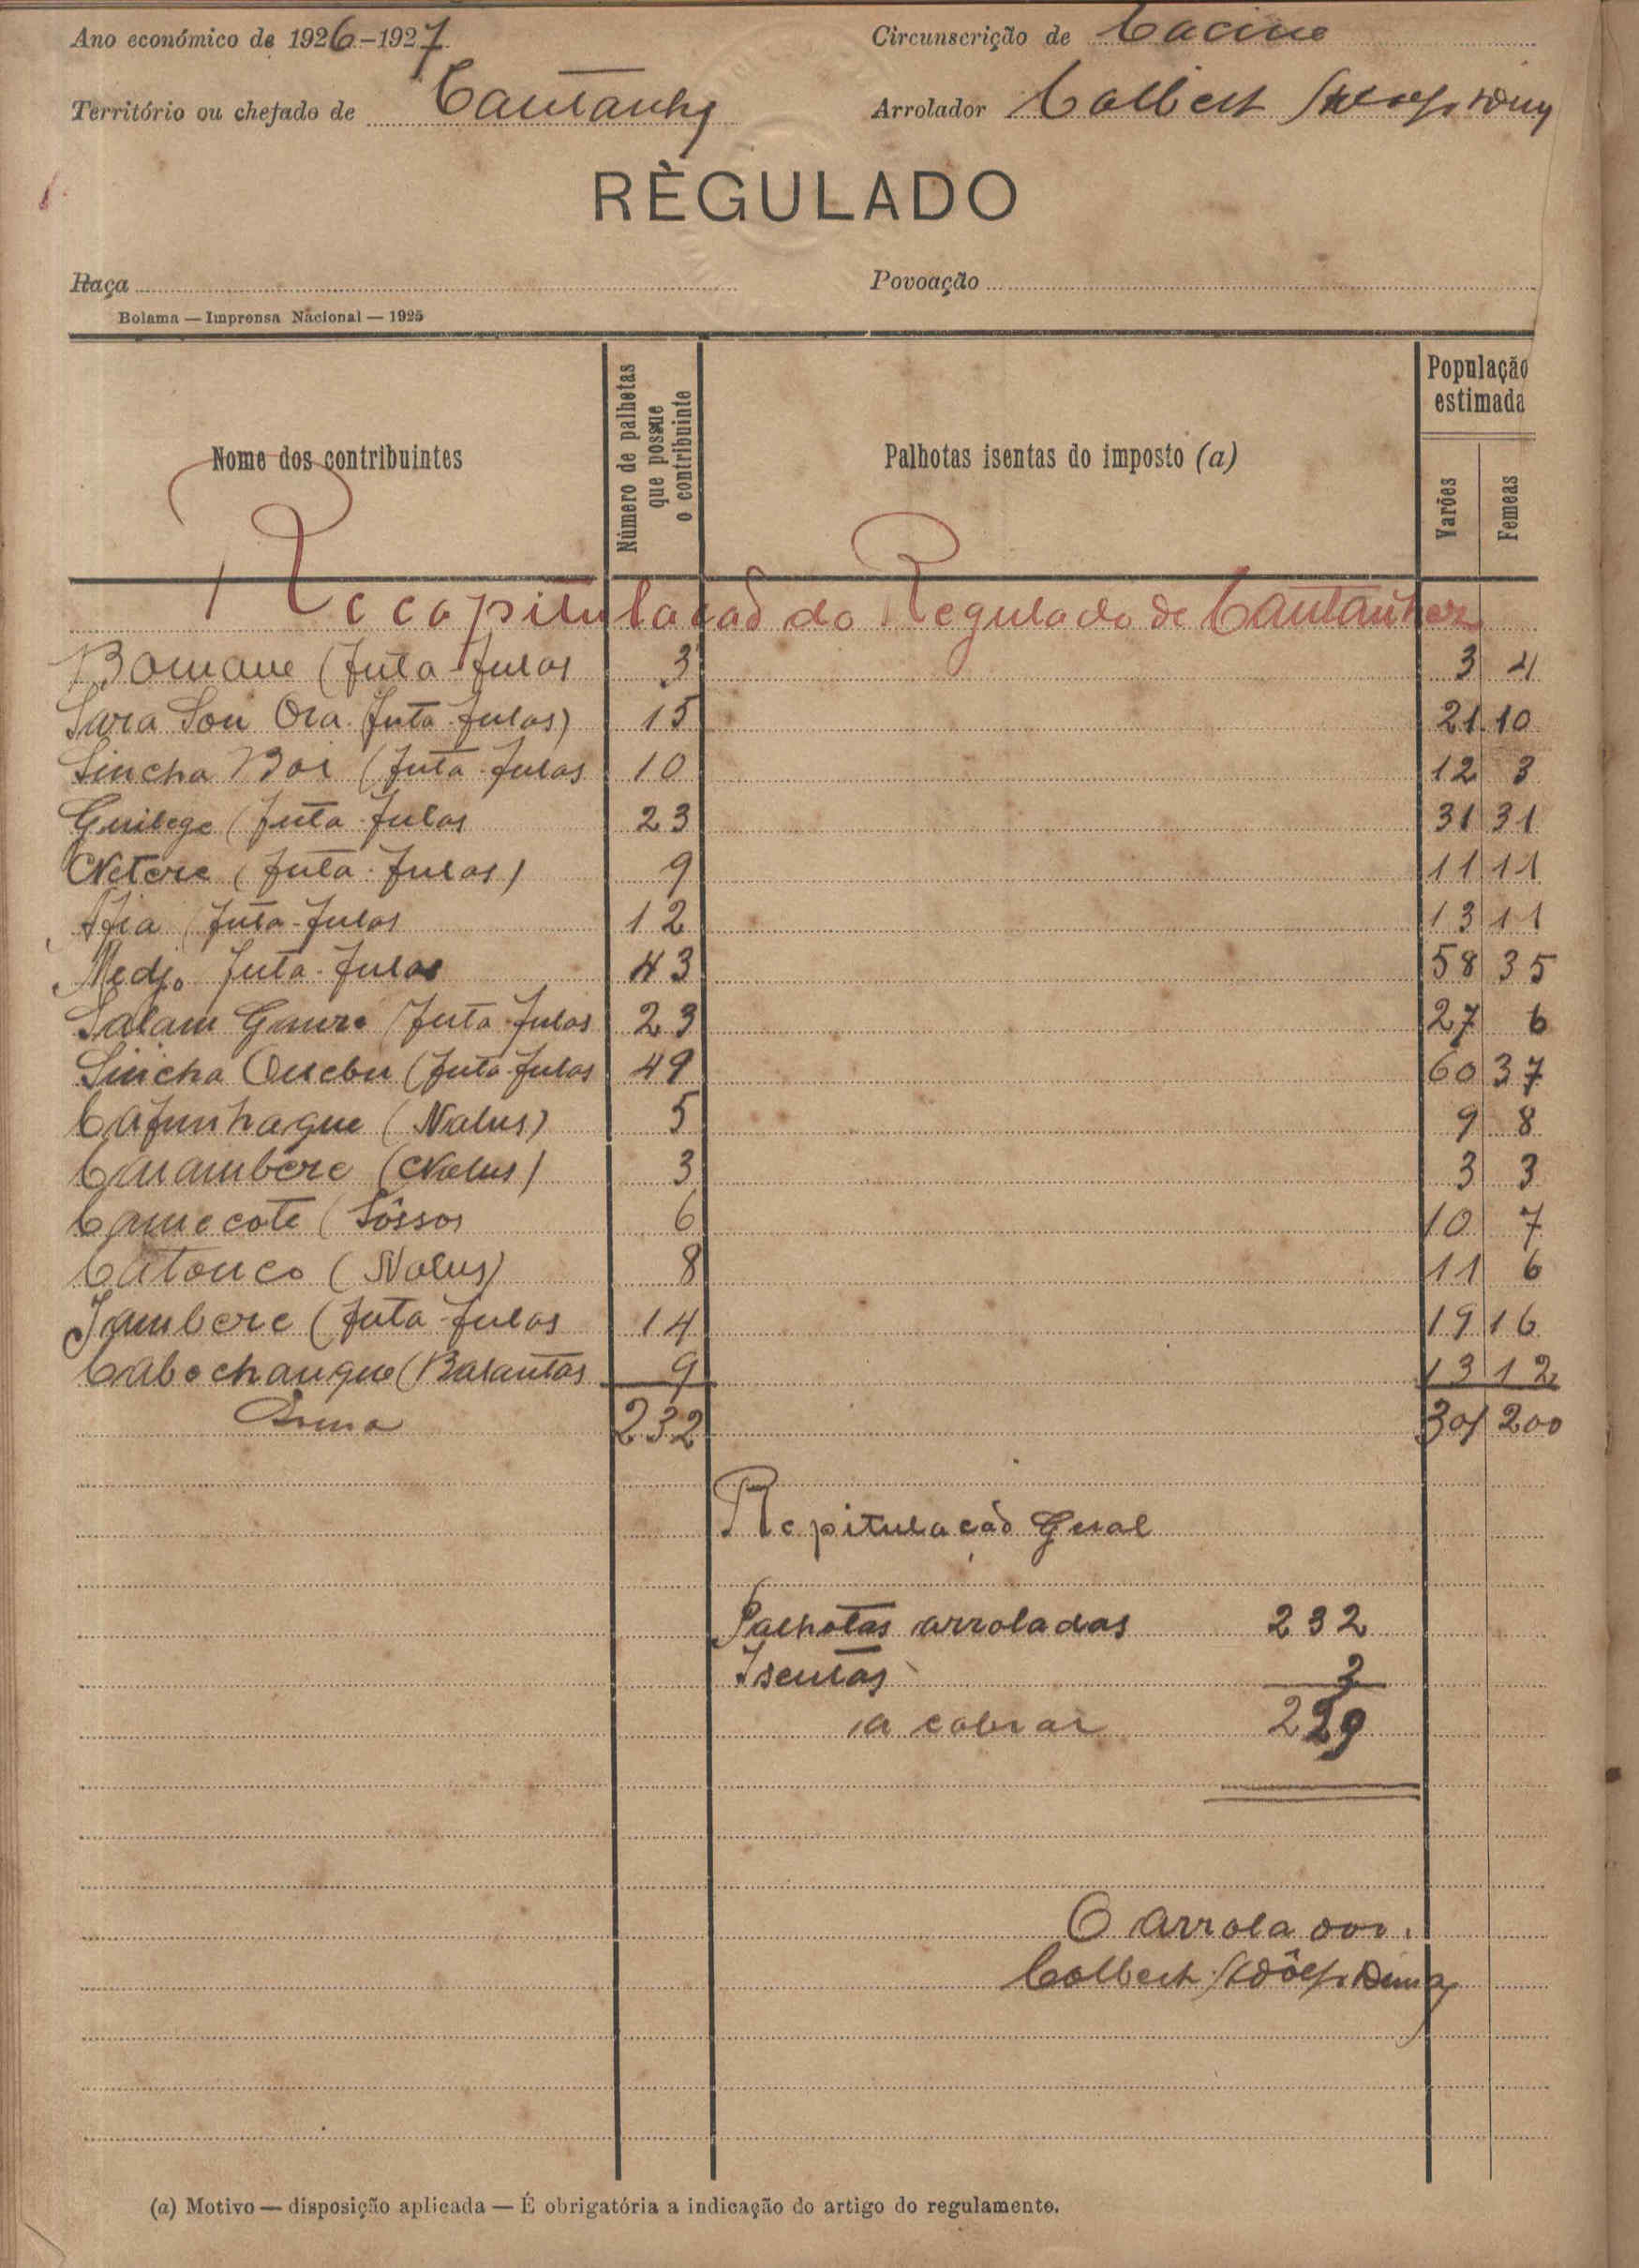 Ano económico de 1926-1927 Circunscrição de Cacine
Território ou chefado de Cantanhz Arrolador Colbert
RÈGULADO
Raça Povoação
Bolama — Imprensa Nacional — 1925
Nome dos contribuintes
Número de palhetas que possue o contribuinte
Palhotas isentas do imposto (a)
População estimada
Varões
Femeas
Recapitulacaõ do Regulado de Cantanhez
Bomane (futa-fulas 3 3 4
Sara Sou Ora (futa-fulas) 15 21 10
Sincha Boi (futa-fulas 10 12 3
Guilege (futa-fulas 23 31 31
Netere (futa-fulas) 9 11 11
Afia (futa-fulas 12 13 11
Medjo futa-fulas 43 58 35
Salam Gauro (futa-fulas 23 27 6
Sincha Quebu (futa-fulas 49 60 37
Cafunhaque (Nalus) 5 9 8
Carambere (Nalus) 3 3 3
Camecote (Sôssos 6 10 7
Catonco (Nalus) 8 11 6
Jambere (futa-fulas 14 19 16
Cabochanque (Balantas 9 13 12
Soma 232 301 200
Repitulacaõ Geral
Palhotas arroladas 232
Isentas 3
a cobrar 229
O arrolador.
Colbert
(a) Motivo — disposição aplicada — É obrigatória a indicação do artigo do regulamento.